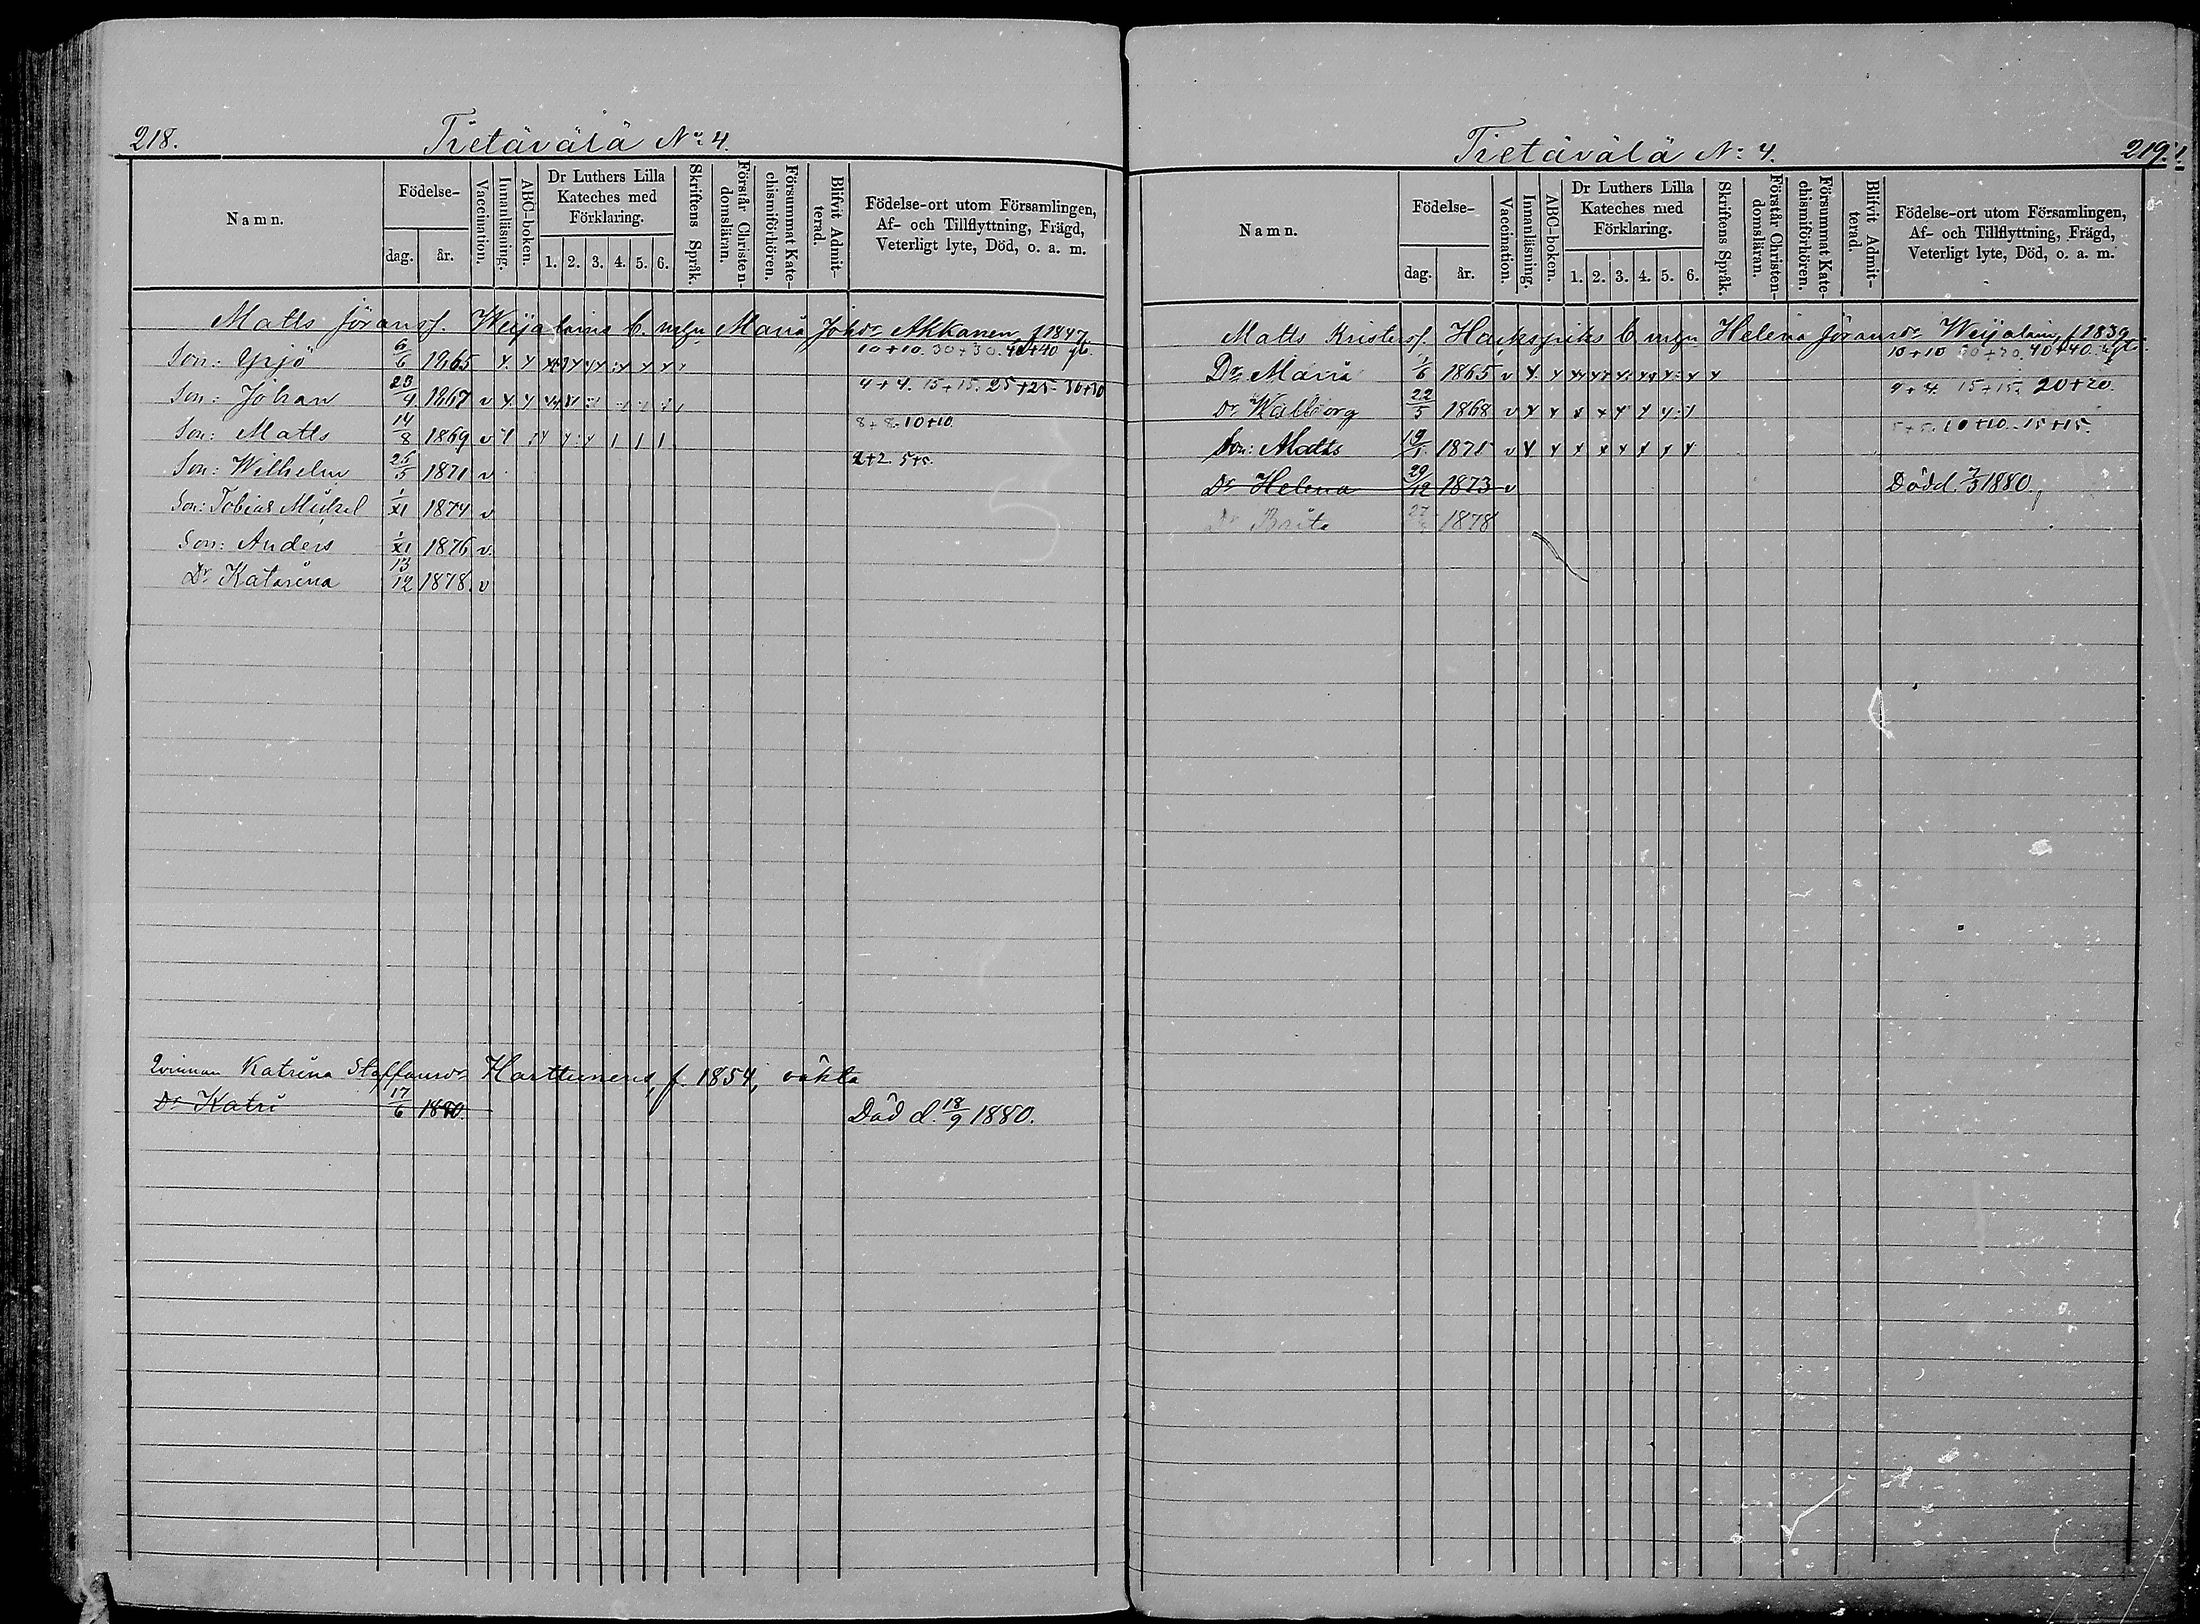 218.
Tietävälä No: 4.
Namn.
Födelse-
dag.
år.
Vaccination.
Innanläsning.
ABC-boken.
Dr Luthers Lilla Kateches med Förklaring.
1. 2. 3. 4. 5. 6.
Skriftens Språk.
Förstår Christendomsläran.
Försummat Katechismiförhören.
Blifvit Admitterad.
Födelse-ort utom Församlingen, Af- och Tillflyttning, Frägd, Veterligt lyte, Död, o. a. m.
Matts Göranss. Weijalains b. m hu Maria Johdr Akkanen, f 1847,
Son: Yrjö 6/6 1865 10+10. 30+30. 40+40
Son: Johan 23/4 1867 v 4+4. 15+15. 25+25. 30+30
Son: Matts 14/8 1869 v 8+8. 10+10
Son: Wilhelm 25/5 1871 v 2+2. 5+5.
Son: Tobias Mickel 1/XI 1874 v
Son: Anders 1/XI 1876 v.
Dr Katarina 13/12 1878. v
Qvinnan Katrina Staffansdr Harttunens, f. 1854, oäkta
Dr Katri 17/6 1880. Död d. 18/9 1880.
Tietävälä No: 4.
219.
Namn.
Födelse-
dag.
år.
Vaccination.
Innanläsning.
ABC-boken.
Dr Luthers Lilla Kateches med Förklaring.
1. 2. 3. 4. 5. 6.
Skriftens Språk.
Förstår Christendomsläran.
Försummat Katechismiförhören.
Blifvit Admitterad.
Födelse-ort utom Församlingen, Af- och Tillflyttning, Frägd, Veterligt lyte, Död, o. a. m.
Matts Kristerss. Helena Göransdr Weijalain, f 1839
Dr Maria 1/6 1865 v 10+10 40+40.
Dr Walborg 22/5 1868 v 15+15. 20+20.
Son: Matts 19/1 1871 v 5+5. 10+10. 15+15.
Dr Helena 29/12 1873 v Död d. 7/3 1880.
Dr Brita 1878